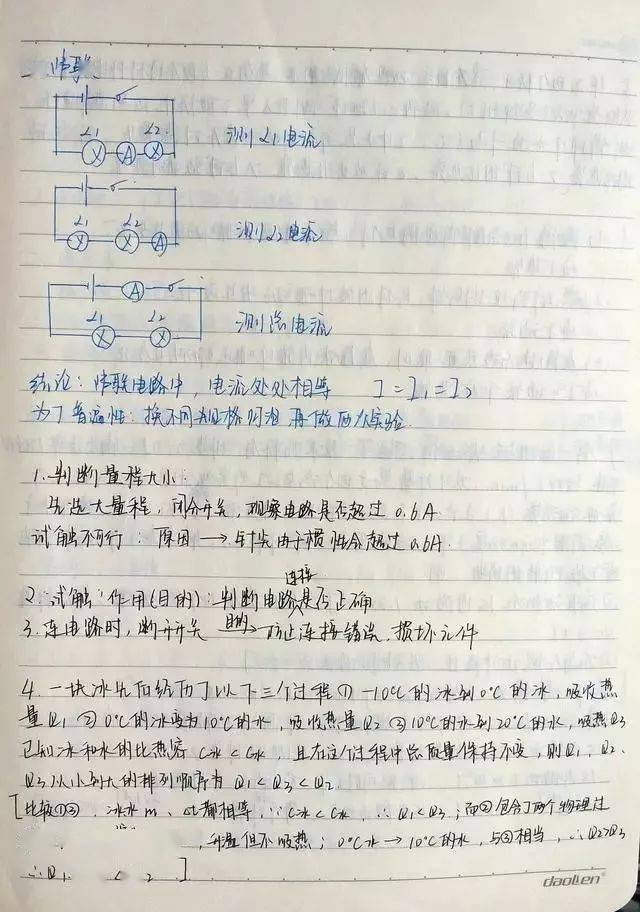 一、"串联"
L1 L2
X A X 测L1电流
L1 L2
X X A 测L2电流
A
L1 L2
X X 测总电流
结论：串联电路中，电流处处相等 I=I1=I2
为了普遍性：换不同规格灯泡再做两次实验.
1.判断量程大小.
先选大量程，闭合开关，观察电路是否超过0.6A.
试触不可行：原因→针尖由于惯性会超过0.6A.
连接
2."试触"作用(目的)：判断电路是否正确
3.连电路时，断开开关 目的→防止连接错误，损坏元件
4.一块冰先后经历了以下三个过程①-10℃的冰到0℃的冰，吸收热
量Q1 ②0℃的冰变为10℃的水，吸收热量Q2 ③10℃的水到20℃的水，吸热Q3
已知冰和水的比热容 C冰<C水，且在这个过程中总质量保持不变，则Q1、Q2、
Q3从小到大的排列顺序为Q1<Q3<Q2
[比较①③，冰水m、Δt都相等，∵C冰<C水，∴Q1<Q3；而②包含了两个物理过
升温但不吸热；0℃水→10℃的水，与③相当，∴Q2>Q3
∴Q1 < 2 ]
daolien®